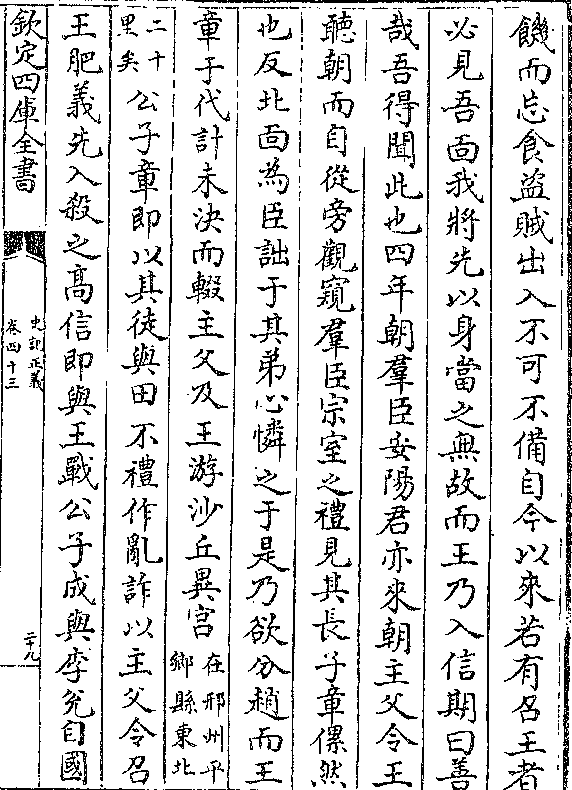 饑而忘食盜賊出入不可不備自今以來若有召王者
必見吾面我將先以身當之無故而王乃入信期曰善
哉吾得聞此也四年朝羣臣安陽君亦來朝主父令王
聽朝而自從旁觀窺羣臣宗室之禮見其長子章傫然
也反北面為臣詘于其弟心憐之于是乃欲分趙而王
章于代計未決而輟主父及王游沙丘異宮在邢州平鄉縣東北
二十里矣公子章即以其徒與田不禮作亂詐以主父令召
王肥義先入殺之高信即與王戰公子成與李兊自國
欽定四庫全書
史記正義
卷四十三
二十九